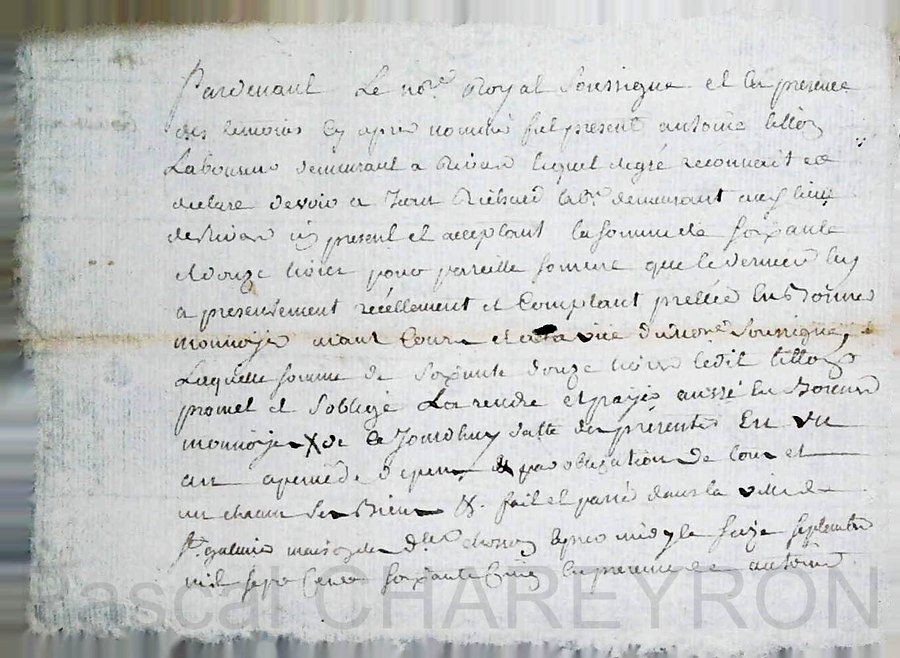 Pardevant Le nore Royal Soussigné et En presence
des temoins Cy apres nommés fut present antoine tillon
Laboureur demeurant a Rivas lequel de gré reconnait et
declare devoir a Jean Richard labr. demeurant aud lieu
de Rivas icy present et acceptant la somme de soixante
et douze livres pour pareille somme que le dernier luy
a presentement reéellement et Comptant prettée En Bonnes
monnoye aiant Cours et a la vüe du nore Soussigné,
Laquelle somme de soixante douze livres ledit tillon
promet et soblige La rendre et payer aussé En Bonnes
monnoye de Ce Jourdhuy datte des présentes En un
an apeine de depens par obligation de tous et
un chacun ses Biens &. fait et passé dans la ville de
St. galmier maison de apres midy le seize septembre
mil sept Cens soixante Cinq En presence de antoine
Pascal CHAREYRON